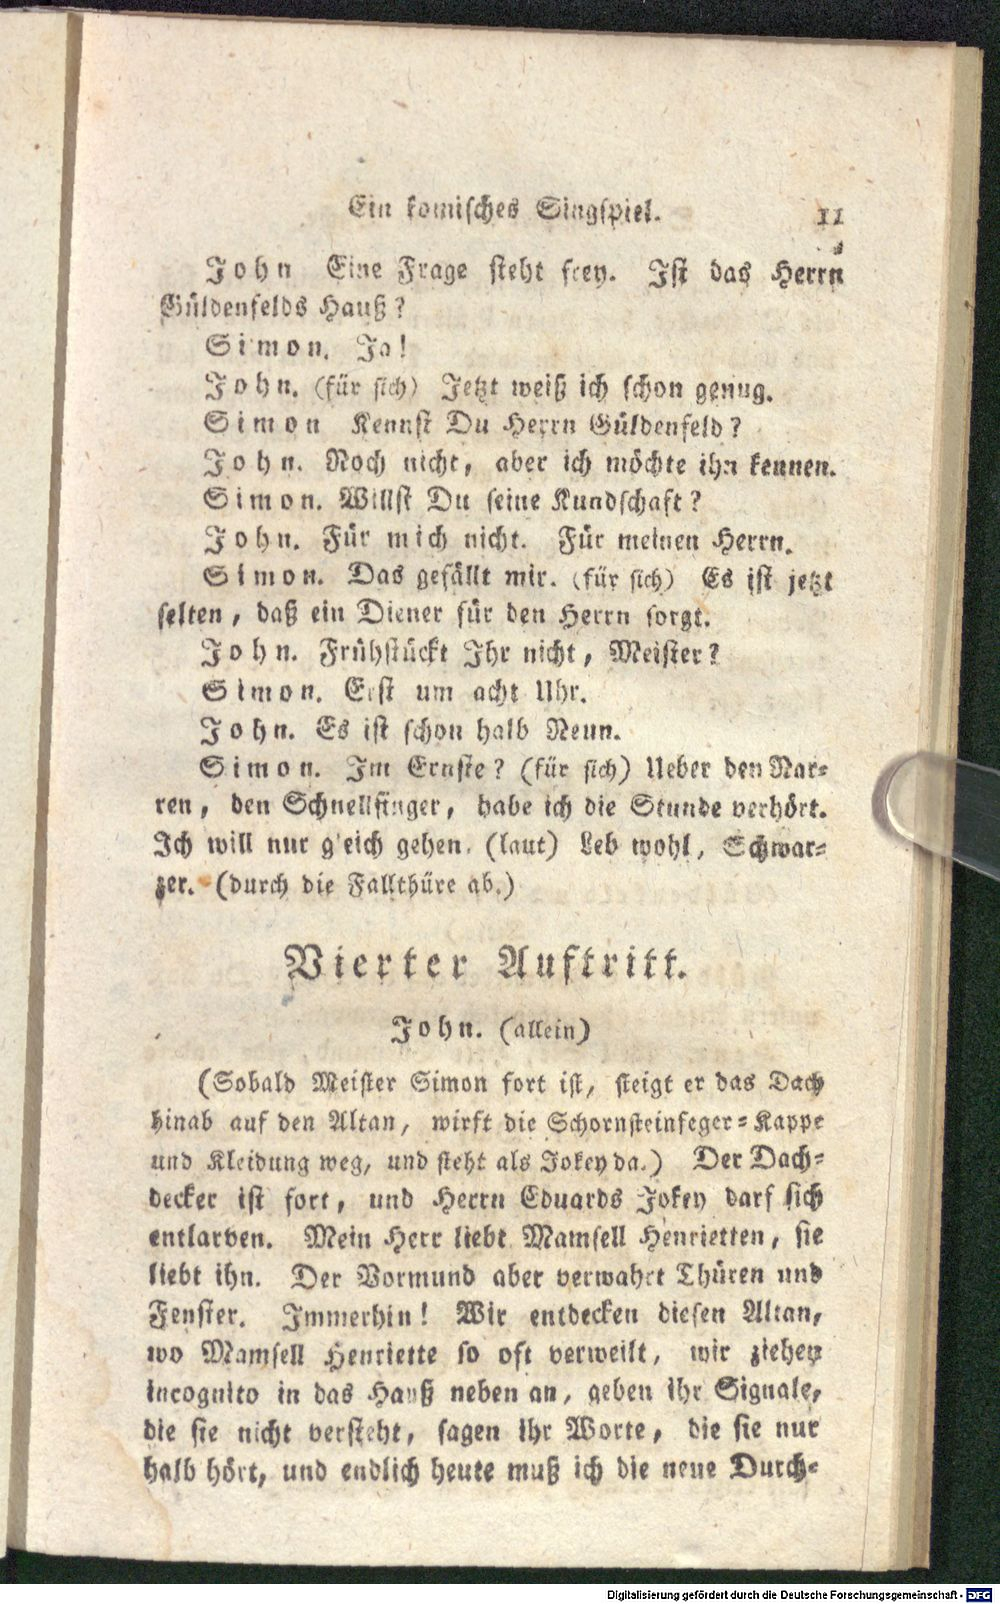 Ein komisches Singspiel. 11
John Eine Frage steht frey. Ist das Herrn
Güldenfelds Hauß?
Simon. Ja!
John. (für sich) Jetzt weiß ich schon genug.
Simon Kennst Du Herrn Güldenfeld?
John. Noch nicht, aber ich möchte ihn kennen.
Simon. Willst Du seine Kundschaft?
John. Für mich nicht. Für meinen Herrn.
Simon. Das gefällt mir. (für sich) Es ist jetzt
selten, daß ein Diener für den Herrn sorgt.
John. Frühstückt Ihr nicht, Meister?
Simon. Erst um acht Uhr.
John. Es ist schon halb Neun.
Simon. Im Ernste? (für sich) Ueber den Nar-
ren, den Schnellfinger, habe ich die Stunde verhört.
Ich will nur gleich gehen. (laut) Leb wohl, Schwar-
zer. (durch die Fallthüre ab.)
Vierter Auftritt.
John. (allein)
(Sobald Meister Simon fort ist, steigt er das Dach
hinab auf den Altan, wirft die Schornsteinfeger-Kappe
und Kleidung weg, und steht als Jokey da.) Der Dach-
decker ist fort, und Herrn Eduards Jokey darf sich
entlarven. Mein Herr liebt Mamsell Henrietten, sie
liebt ihn. Der Vormund aber verwahrt Thüren und
Fenster. Immerhin! Wir entdecken diesen Altan,
wo Mamsell Henriette so oft verweilt, wir ziehen
incognito in das Hauß neben an, geben ihr Signale,
die sie nicht versteht, sagen ihr Worte, die sie nur
halb hört, und endlich heute muß ich die neue Durch-
Digitalisierung gefördert durch die Deutsche Forschungsgemeinschaft - DFG